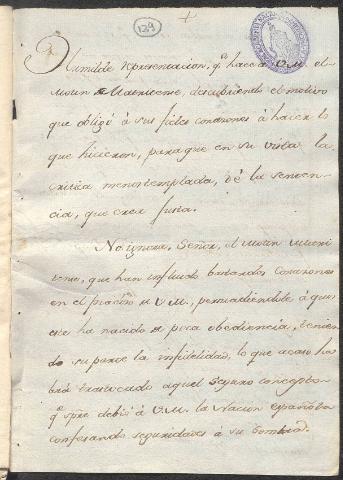 139
Humilde representacion, qe hace a V.M. el
Motin Matritense, descubriendo el motivo
que obligó á sus fieles corazones á hacer lo
que hicieron, para que en su vista la
critica menos templada, dé la senten-
cia, que crea justa.
No ignora, Señor, el Motin Matri
tense, que han influido bastardos corazones
en el piadoso de V.M., persuadiendole á que
este ha nacido de poca obediencia, tenien
do su parte la infidelidad, lo que acaso ha
brá trastocado aquel seguro concepto
qe spre debió á V.M. la Nacion española
confesando seguridades á su